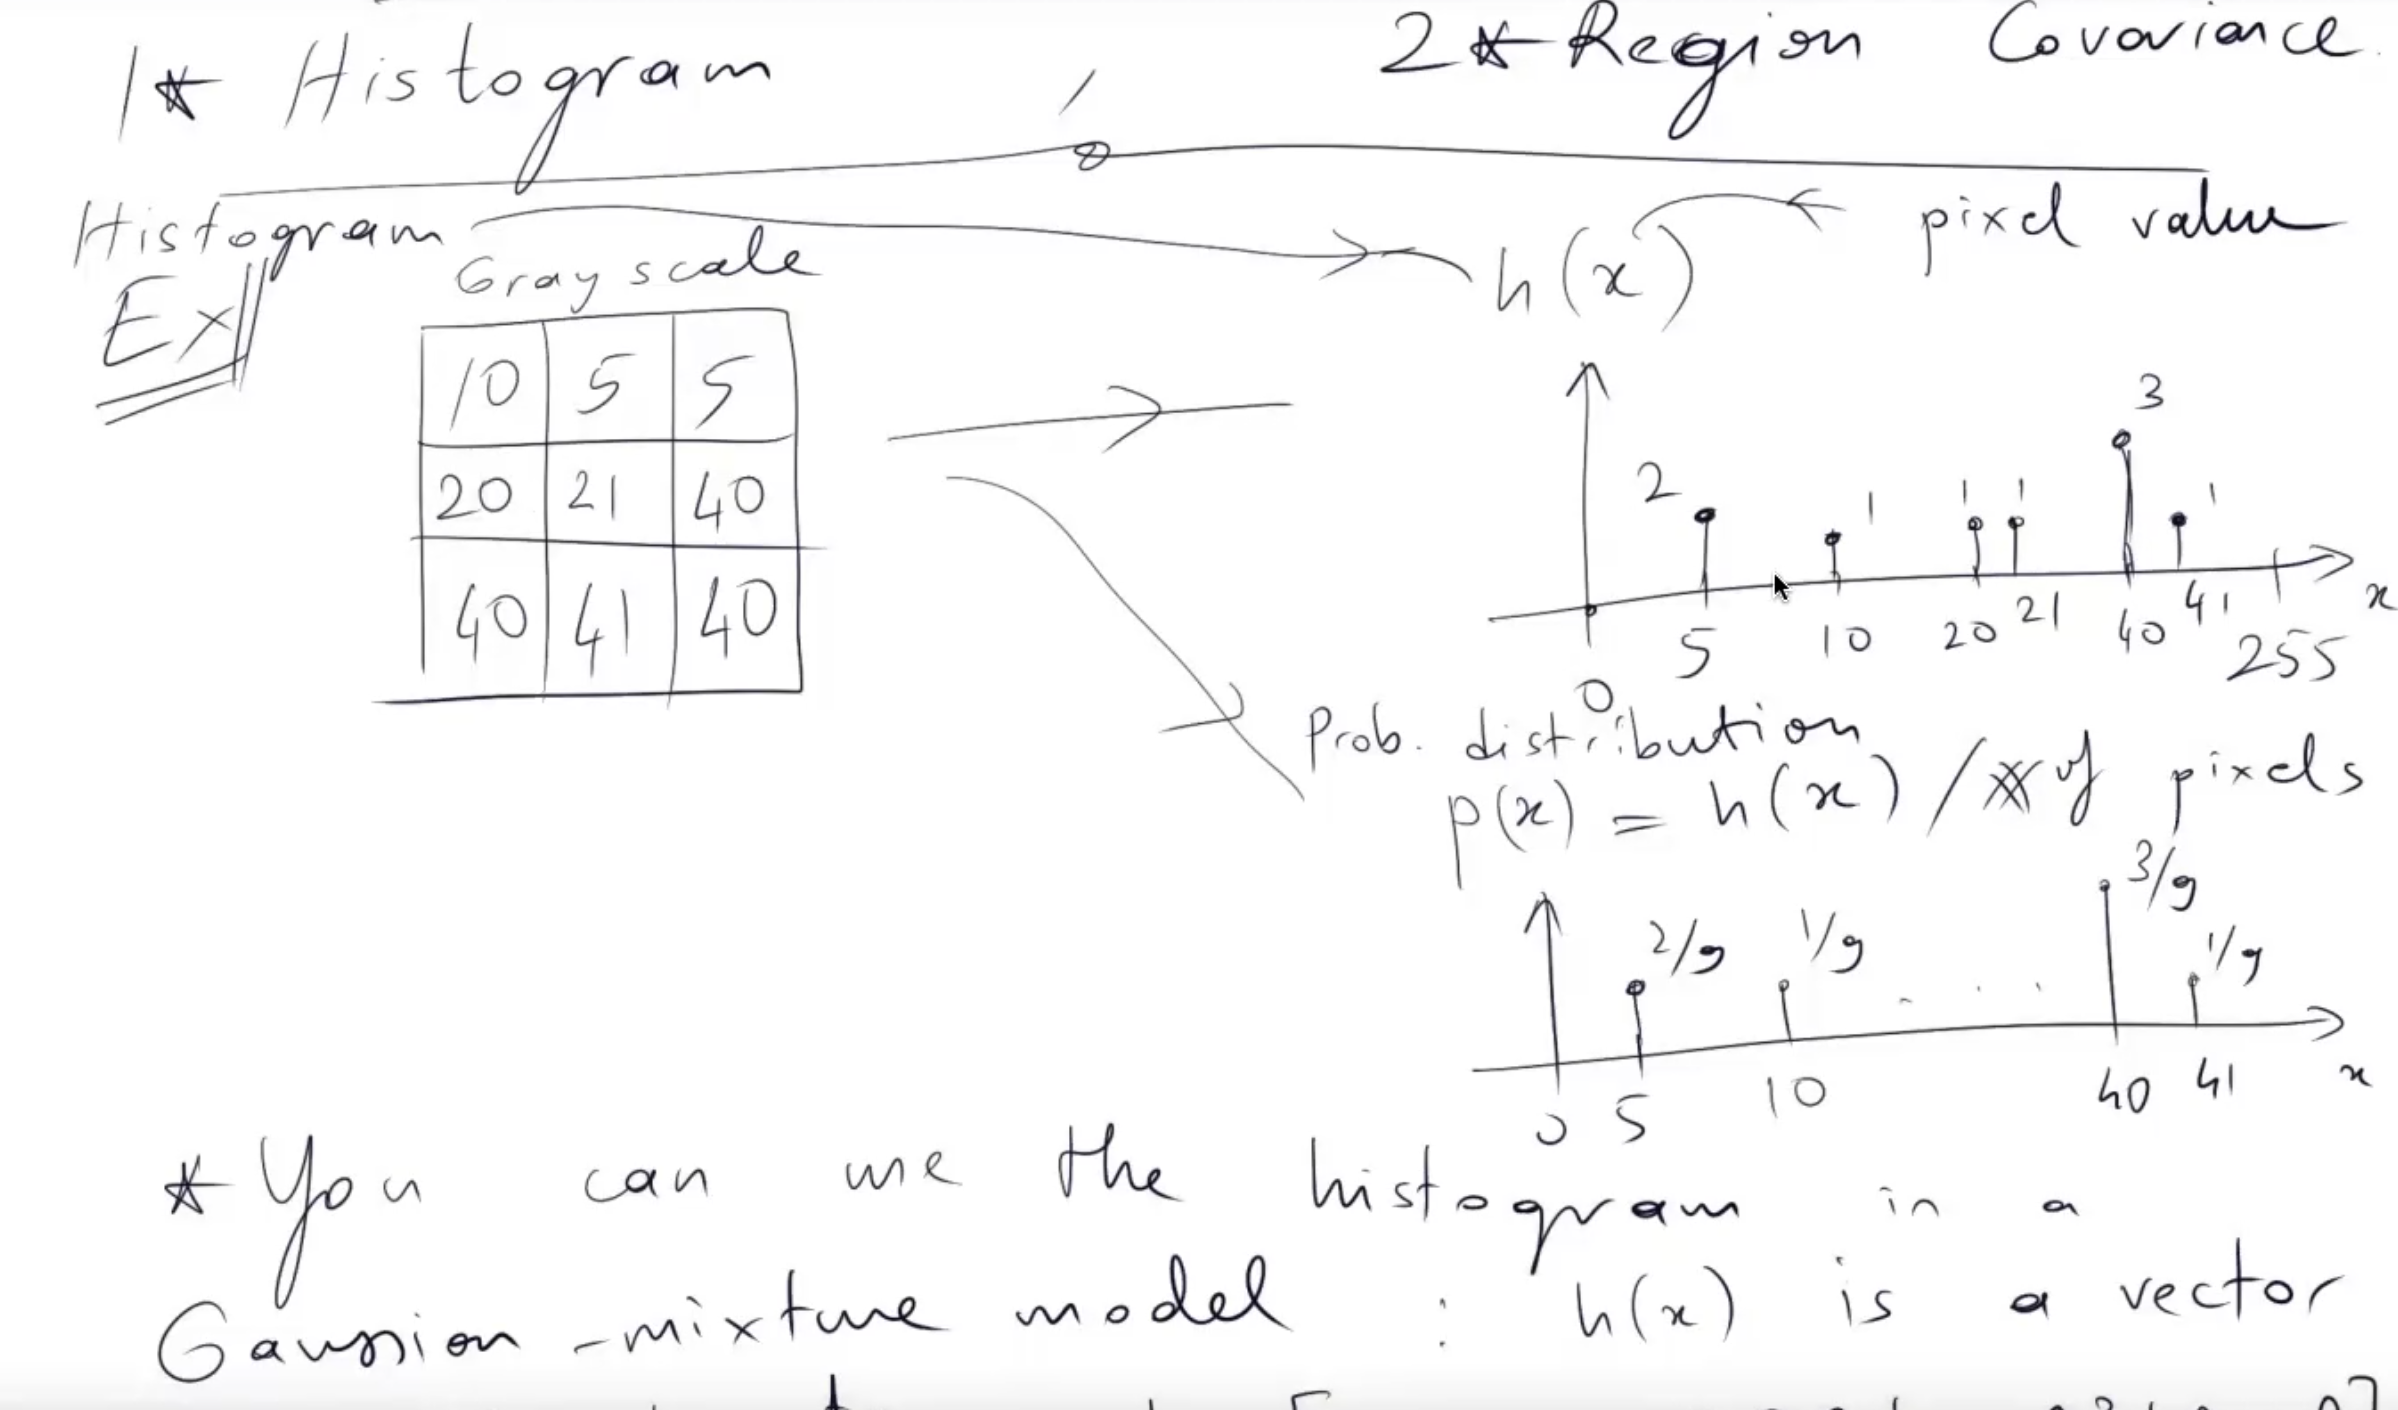 1* Histogram 2* Region Covariance
Histogram h(x) pixel value
Ex Gray scale
10 5 5
20 21 40
40 41 40
2 1 1 1 3 1
0 5 10 20 21 40 41 255 x
Prob. distribution
p(x) = h(x) / # of pixels
2/9 1/9 . . . 3/9 1/9
0 5 10 40 41 x
* You can use the histogram in a
Gaussian - mixture model : h(x) is a vector